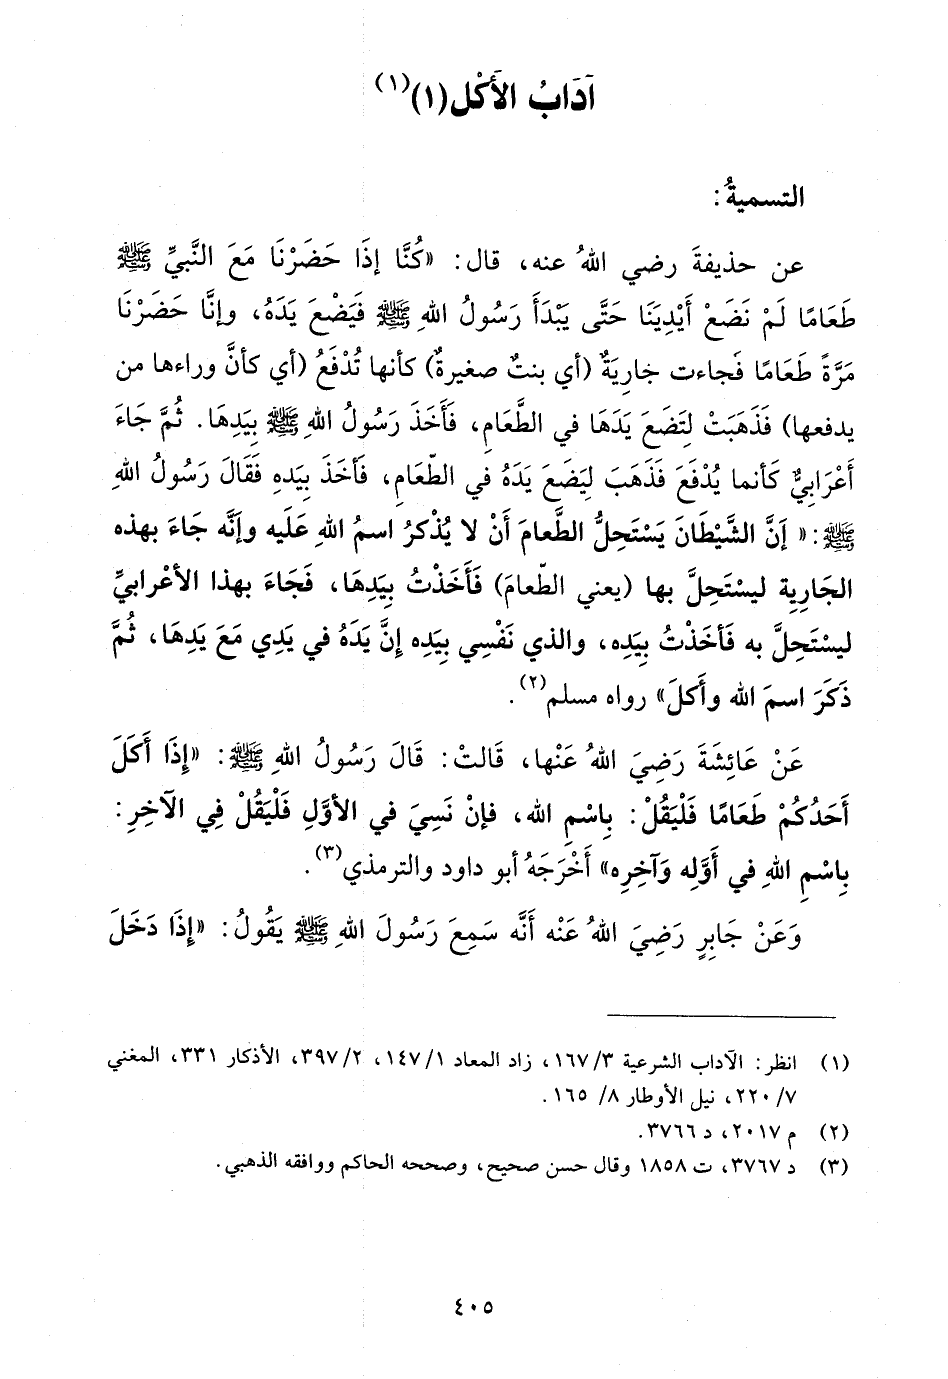 آدَابُ الأَكْل (١)(١)
التسميةُ:
عن حذيفةَ رضي اللهُ عنه، قال: «كُنَّا إذَا حَضَرْنَا مَعَ النَّبيِّ ﷺ
طَعَامًا لَمْ نَضَعْ أيْدِيَنَا حَتَّى يَبْدَأَ رَسُولُ اللهِ ﷺ فَيَضْعَ يَدَهُ، وإنَّا حَضَرْنَا
مَرَّةً طَعَامًا فَجاءت جَارِيَةٌ (أي بنتٌ صغيرةٌ) كأنها تُدْفَعُ (أي كأنَّ وراءها من
يدفعها) فَذَهَبَتْ لِتَضَعَ يَدَهَا في الطَّعَامِ، فَأَخَذَ رَسُولُ اللهِ ﷺ بِيَدِهَا. ثُمَّ جَاءَ
أعْرَابيٌّ كَأنما يُدْفَعَ فَذَهَبَ لِيَضَعَ يَدَهُ في الطّعَامِ، فَأخَذَ بِيَدهِ فَقَالَ رَسُولُ اللهِ
ﷺ: «إنَّ الشَّيْطَانَ يَسْتَحِلُّ الطَّعامَ أَنْ لا يُذْكرُ اسمُ اللهِ عَلَيه وإنَّه جَاءَ بهذه
الجَارِية ليسْتَحِلَّ بها (يعني الطّعامَ) فَأَخَذْتُ بِيَدِهَا، فَجَاءَ بهذا الأعْرابيِّ
ليسْتَحِلَّ به فَأخَذْتُ بِيَدِه، والذي نَفْسِي بِيَدِه إنَّ يَدَهُ في يَدِي مَعَ يَدِهَا، ثُمَّ
ذَكَرَ اسمَ الله وأَكلَ» رواه مسلم(٢).
عَنْ عَائِشَةَ رَضِيَ اللهُ عَنْها، قَالتْ: قَالَ رَسُولُ اللهِ ﷺ: «إذَا أكَلَ
أَحَدُكُمْ طَعَامًا فَلْيَقُلْ: بِاسْمِ الله، فإنْ نَسِيَ في الأوَّلِ فَلْيَقُلْ فِي الآخِرِ:
بِاسْمِ اللهِ في أَوَّلِه وَآخِرِه» أَخْرَجَهُ أبو داود والترمذي(٣).
وَعَنْ جَابِرٍ رَضِيَ اللهُ عَنْه أنَّه سَمِعَ رَسُولَ اللهِ ﷺ يَقُولُ: «إذَا دَخَلَ
(١) انظر: الآداب الشرعية ١٦٧/٣، زاد المعاد ١٤٧/١، ٣٩٧/٢، الأذكار ٣٣١، المغني
٢٢٠/٧، نيل الأوطار ٨/ ١٦٥.
(٢) م ٢٠١٧، د ٣٧٦٦.
(٣) د ٣٧٦٧، ت ١٨٥٨ وقال حسن صحيح، وصححه الحاكم ووافقه الذهبي.
٤٠٥